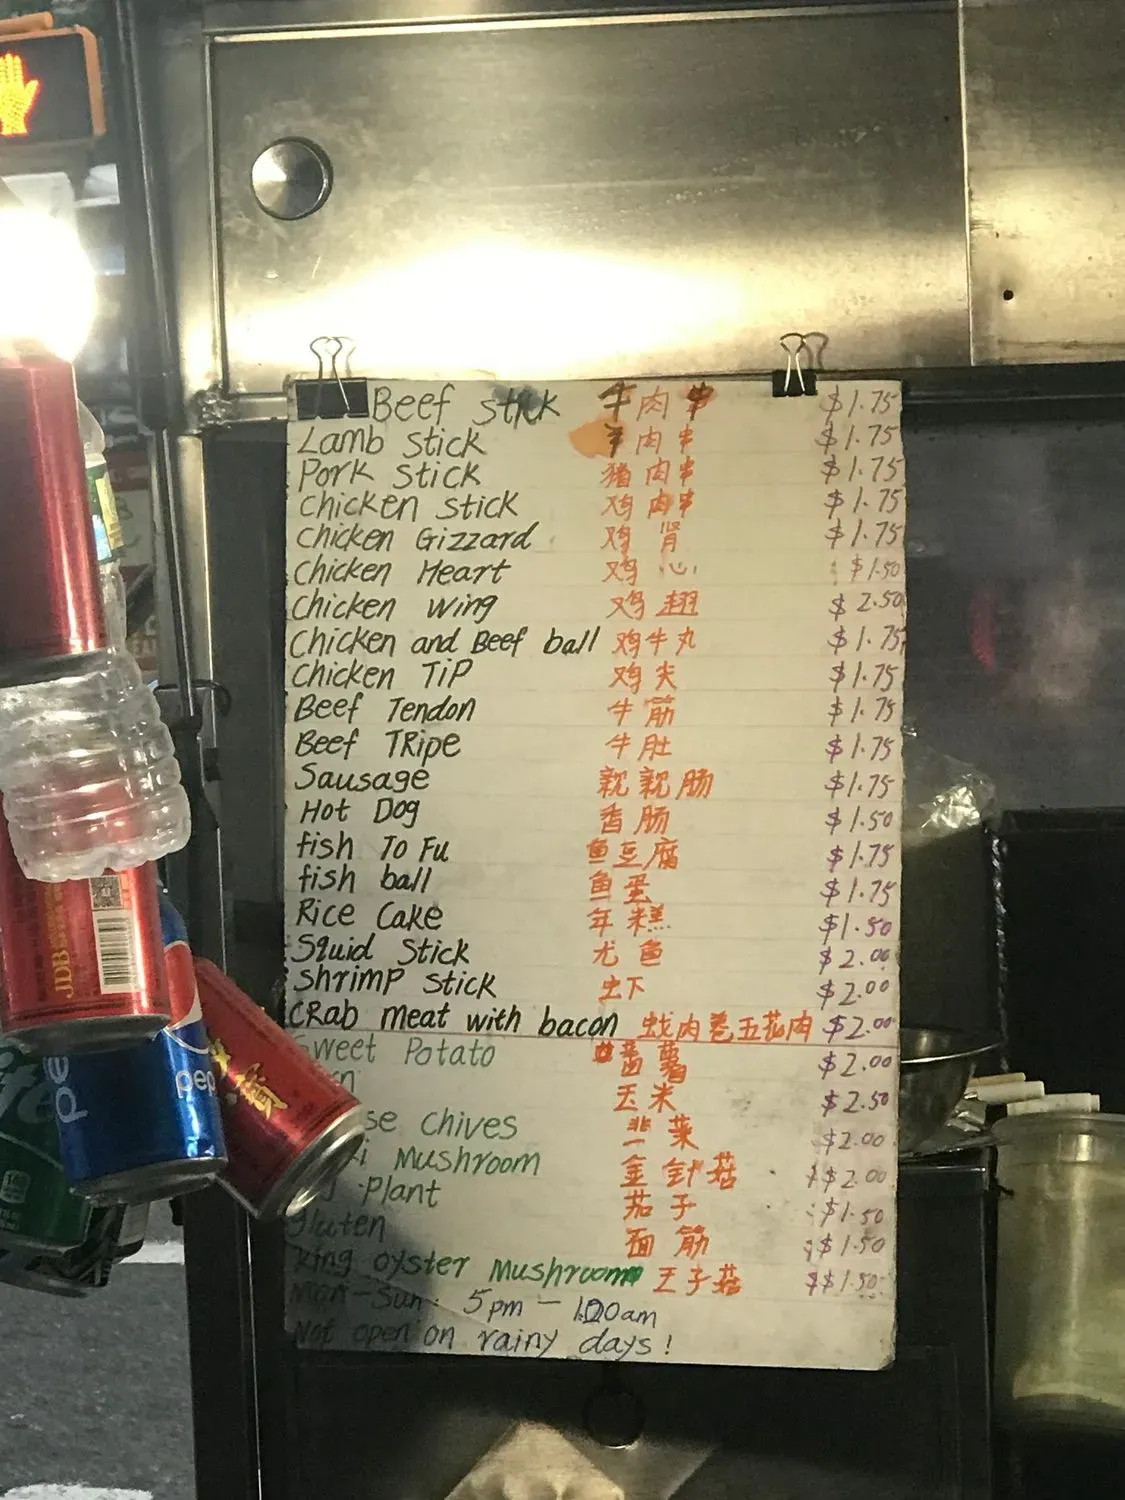 Beef stick 牛肉串 $1.75
Lamb stick 羊肉串 $1.75
Pork stick 猪肉串 $1.75
Chicken stick 鸡肉串 $1.75
Chicken Gizzard 鸡肾 $1.75
Chicken Heart 鸡心 $1.50
Chicken wing 鸡翅 $2.50
Chicken and Beef ball 鸡牛丸 $1.75
Chicken TiP 鸡尖 $1.75
Beef Tendon 牛筋 $1.75
Beef TRipe 牛肚 $1.75
Sausage 肠 $1.75
Hot Dog 香肠 $1.50
fish To Fu 鱼豆腐 $1.75
fish ball 鱼蛋 $1.75
Rice Cake 年糕 $1.50
Squid Stick 尤鱼 $2.00
Shrimp Stick 虫下 $2.00
CRab meat with bacon 肉卷五花肉 $2.00
Sweet Potato 番薯 $2.00
玉米 $2.50
se Chives 韭菜 $2.00
ki Mushroom 金针菇 $2.00
Plant 茄子 $1.50
gluten 面筋 $1.50
king oyster Mushroom 王子菇 $1.50
Mon-Sun: 5pm - 1:00am
Not open on rainy days!
JDB
pepsi
pep